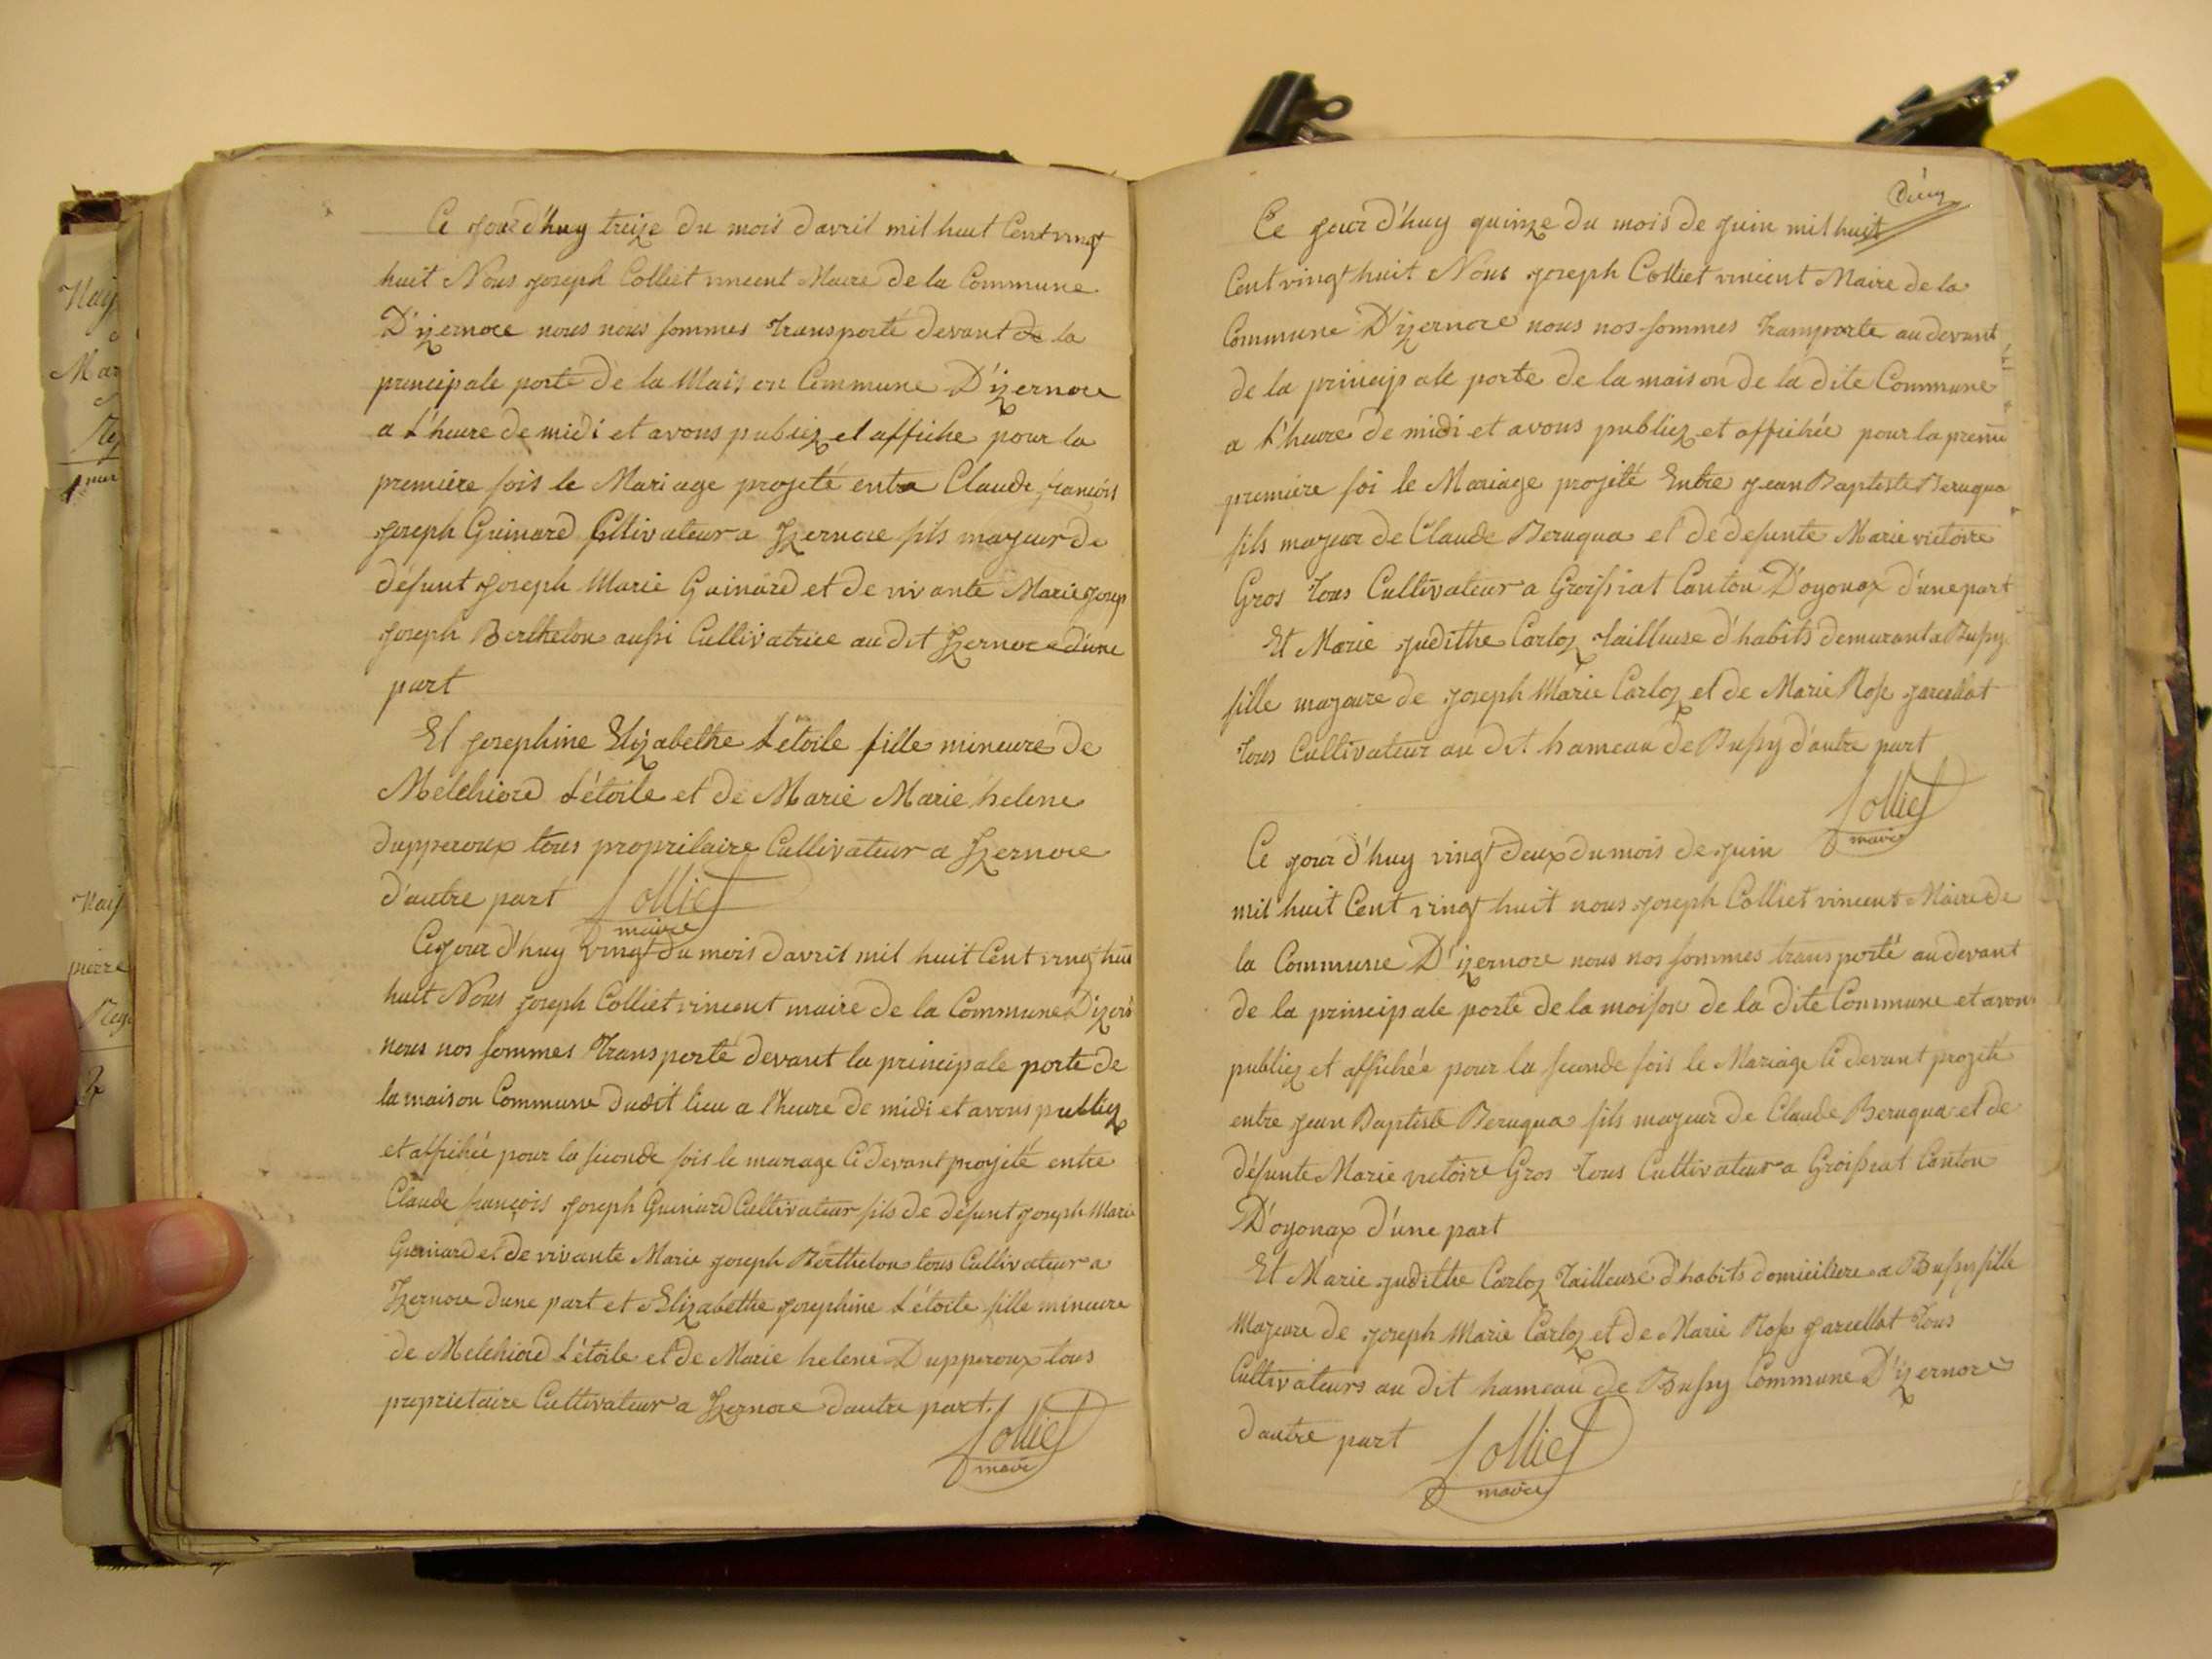 Nais
Mar
Nais
pierre
Ce jour d'huy treize du mois d'avril mil huit Cent vingt
huit Nous joseph Colliet vincent Maire de la Commune
D'izernore nous nous sommes transporté devant de la
principale porte de la Maison Commune D'izernore
a l'heure de midi et avons publiez et affiche pour la
premiere fois le Mariage projeté entre Claude françois
joseph Guinard Cultivateur a Izernore fils majeur de
défunt joseph Marie Guinard et de vivante Marie josep
joseph Berthelon aussi Cultivatrice au dit Izernore d'une
part
Et josephine Elizabethe Létoile fille mineure de
Melchiord Létoile et de Marie Marie helene
Dupperoux tous proprietaire Cultivateur a Izernore
d'autre part Colliet
maire
Ce jour d'huy vingt du mois d'avril mil huit Cent vingt hui
huit Nous joseph Colliet vincent maire de la Commune D'izer
nous nos sommes transporté devant la principale porte de
la maison Commune dudit lieu a l'heure de midi et avons publiez
et affichée pour la seconde fois le mariage Cidevant projeté entre
Claude françois joseph Guinard Cultivateur fils de défunt joseph Marie
Guinard et de vivante Marie joseph Berthelon tous Cultivateur a
Izernore dune part et Elizabethe josephine Létoile fille mineure
de Melchiord Létoile et de Marie helene Dupperoux tous
proprietaire Cultivateur a Izernore dautre part
Colliet
maire
Ce jour d'huy quinze du mois de juin mil huit
Cent vingt huit Nous joseph Colliet vincent Maire de la
Commune D'izernore nous nos sommes transporte au devant
de la principale porte de la maison de la dite Commune
a l'heure de midi et avons publiez et affichée pour la premie
premiere foi le Mariage projété Entre jean Baptiste Beruqua
fils majeur de Claude Beruqua et de defunte Marie victoire
Gros tous Cultivateur a Groissiat Canton D'oyonax d'une part
Et Marie judithe Carloz tailleuse d'habits demurant a Bussy
fille majeure de joseph Marie Carloz et de Marie Rose jarcellat
tous Cultivateur au dit hameau de Bussy d'autre part
Colliet
maire
Ce jour d'huy vingt deux du mois de juin
mil huit Cent vingt huit nous joseph Colliet vincent Maire de
la Commune D'izernore nous nos sommes transporté au devant
de la principale porte de la maison de la dite Commune et avons
publiez et affichée pour la seconde fois le Mariage Ci devant projeté
entre jean Baptiste Beruqua fils majeur de Claude Beruqua et de
défunte Marie victoire Gros tous Cultivateur a Groissiat Canton
D'oyonax d'une part
Et Marie judithe Carloz tailleuse d'habits domiciliere a Bussy fille
Majeure de joseph Marie Carloz et de Marie Rose jarcellat tous
Cultivateurs au dit hameau de Bussy Commune D'izernore
dautre part Colliet
maire